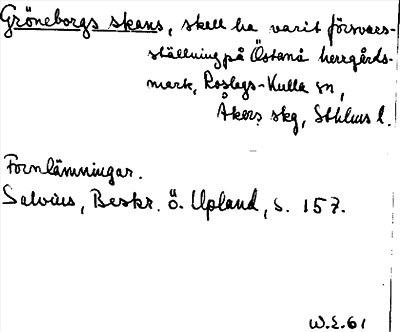 Gröneborgs skans, skall ha varit försvars-
ställning på Östanå herrgårds-
mark, Roslags-Kulla sn,
Åkers skg, Sthlms l.
Fornlämningar.
Salvius, Beskr. ö. Upland, s. 157.
W.E. 61